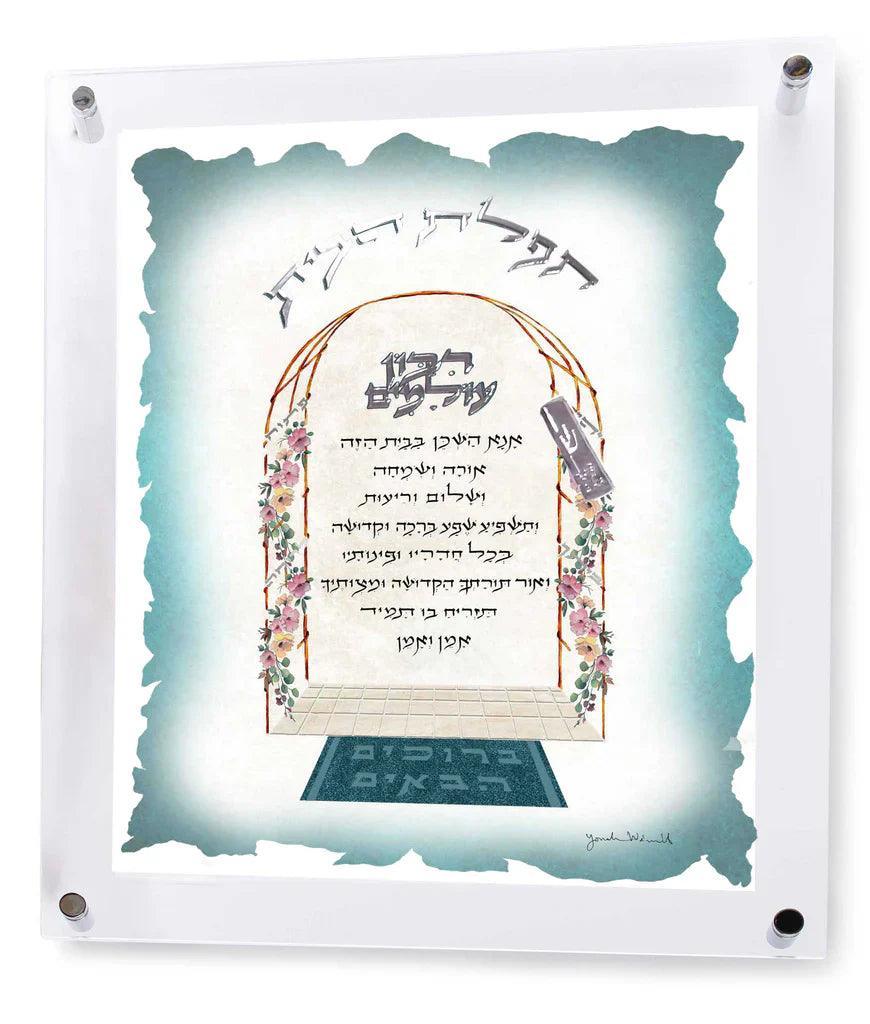 תפלת הבית
רבון
עולמים
אנא השכן בבית הזה
אורה ושמחה
ושלום וריעות
ותשפיע שפע ברכה וקדושה
בכל חדריו ופינותיו
ואור תורתך הקדושה ומצותיך
תזריח בו תמיד
אמן ואמן
ברוכים
הבאים